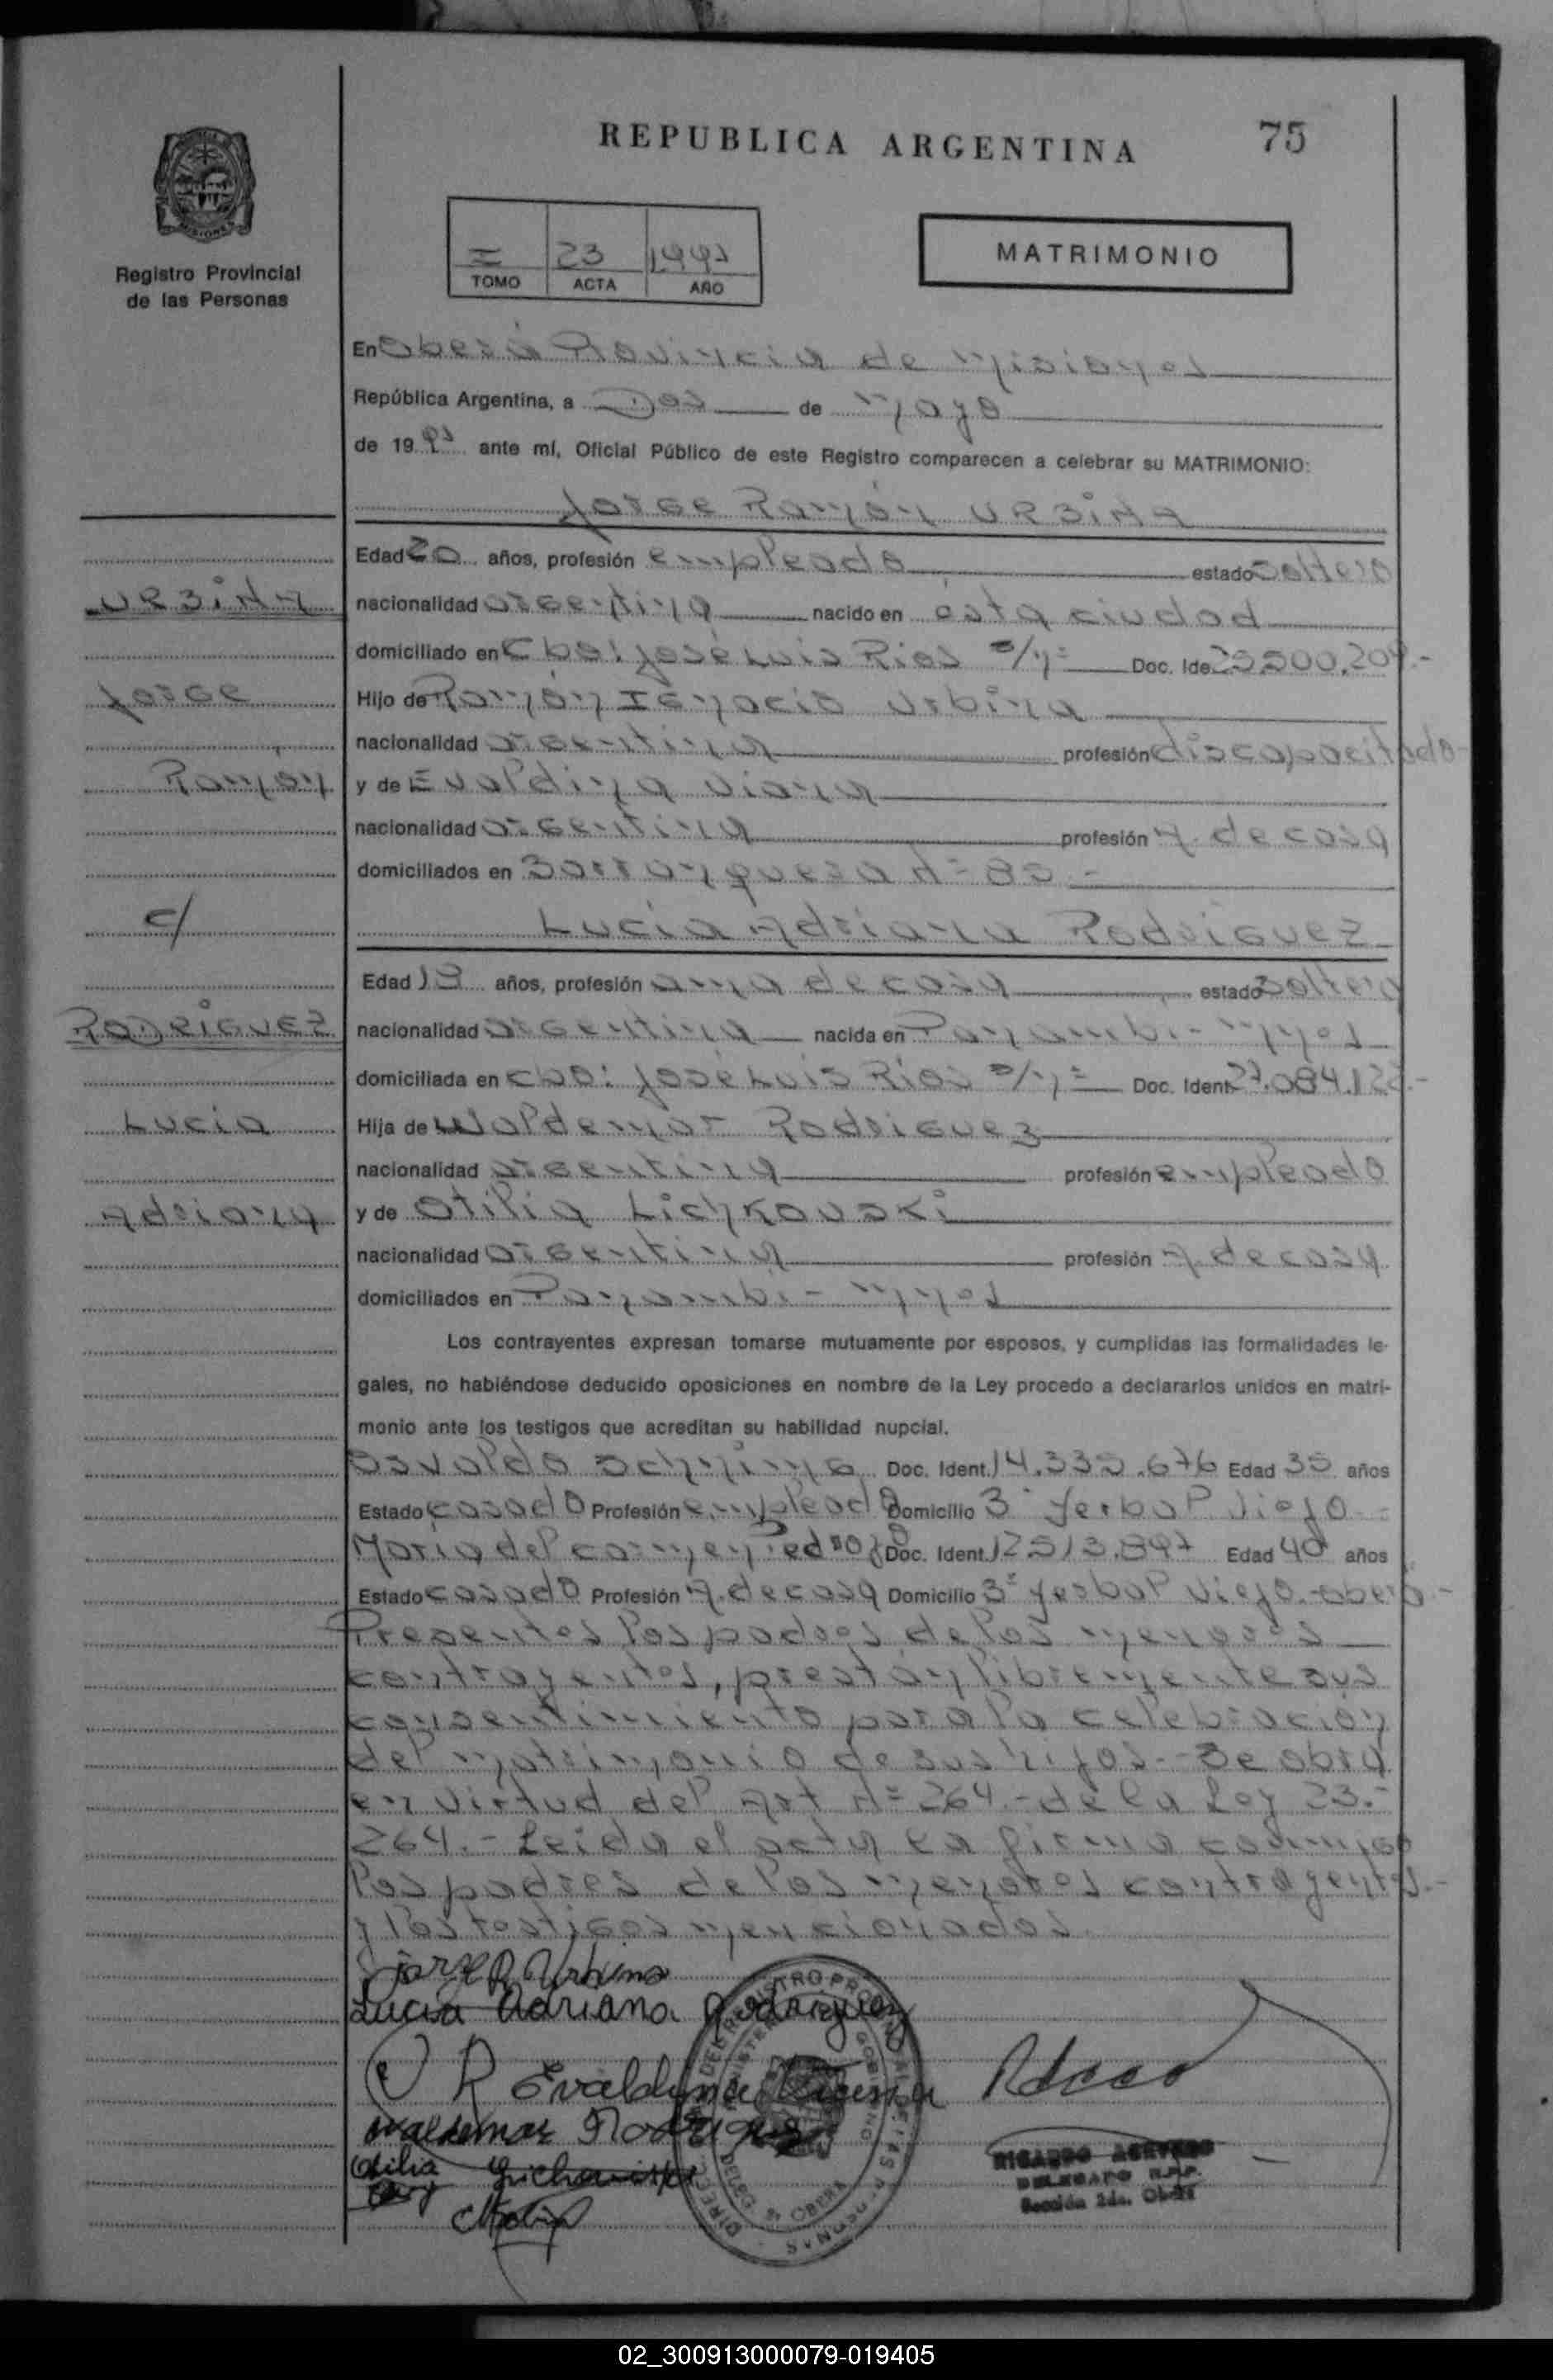 REPUBLICA ARGENTINA
75
MISIONES
Registro Provincial
de las Personas
I 23 1997
TOMO ACTA AÑO
MATRIMONIO
En Oberá Provincia de Misiones
República Argentina, a Dos de Mayo
de 1997 ante mí, Oficial Público de este Registro comparecen a celebrar su MATRIMONIO:
Jorge Ramón URBINA
Edad 20 años, profesión empleado estado soltero
URBINA
nacionalidad argentina nacido en ésta ciudad
domiciliado en Cbo: José Luis Rios s/nº Doc. Ide
Jorge
Hijo de Ramón Ignacio Urbina
nacionalidad argentina profesión discapacitado
Ramón
y de Evaldina Viana
nacionalidad argentina profesión A. de casa
domiciliados en Barranqueza Nº 80.-
c/
Lucía Adriana Rodriguez
Edad 19 años, profesión ama de casa estado soltera
RODRIGUEZ
nacionalidad argentina nacida en Panambí - Mnes
domiciliada en Cbo: José Luis Rios s/nº Doc. Ident. 27.084.
Lucía
Hija de Waldemar Rodriguez
nacionalidad argentina profesión empleado
Adriana
y de Otilia Lichkovski
nacionalidad argentina profesión A. de casa
domiciliados en Panambí - Mnes
Los contrayentes expresan tomarse mutuamente por esposos, y cumplidas las formalidades le-
gales, no habiéndose deducido oposiciones en nombre de la Ley procedo a declararlos unidos en matri-
monio ante los testigos que acreditan su habilidad nupcial.
Osvaldo Doc. Ident. 14.335.676 Edad 35 años
Estado casado Profesión empleado Domicilio 3º Yerbal Viejo -
Maria del carmen Pedrozo Doc. Ident. 12513.897 Edad 40 años
Estado casado Profesión A. de casa Domicilio 3º Yerbal Viejo. Oberá.-
Presentes los padres de los menores
contrayentes, prestan libremente sus
consentimiento para la celebración
del matrimonio de sus hijos.- Se obra
en virtud del Art Nº 264.- de la Ley 23.-
264.- Leida el acta la firma conmigo
los padres de los menores contrayentes.-
y los testigos mencionados.
Jorge R. Urbina
Lucia Adriana Rodriguez
R Evaldina Viana
Waldemar Rodriguez
Otilia
RICARDO ACEVEDO
DELEGADO R.P.P.
Sección 2da. Oberá
02_300913000079-019405